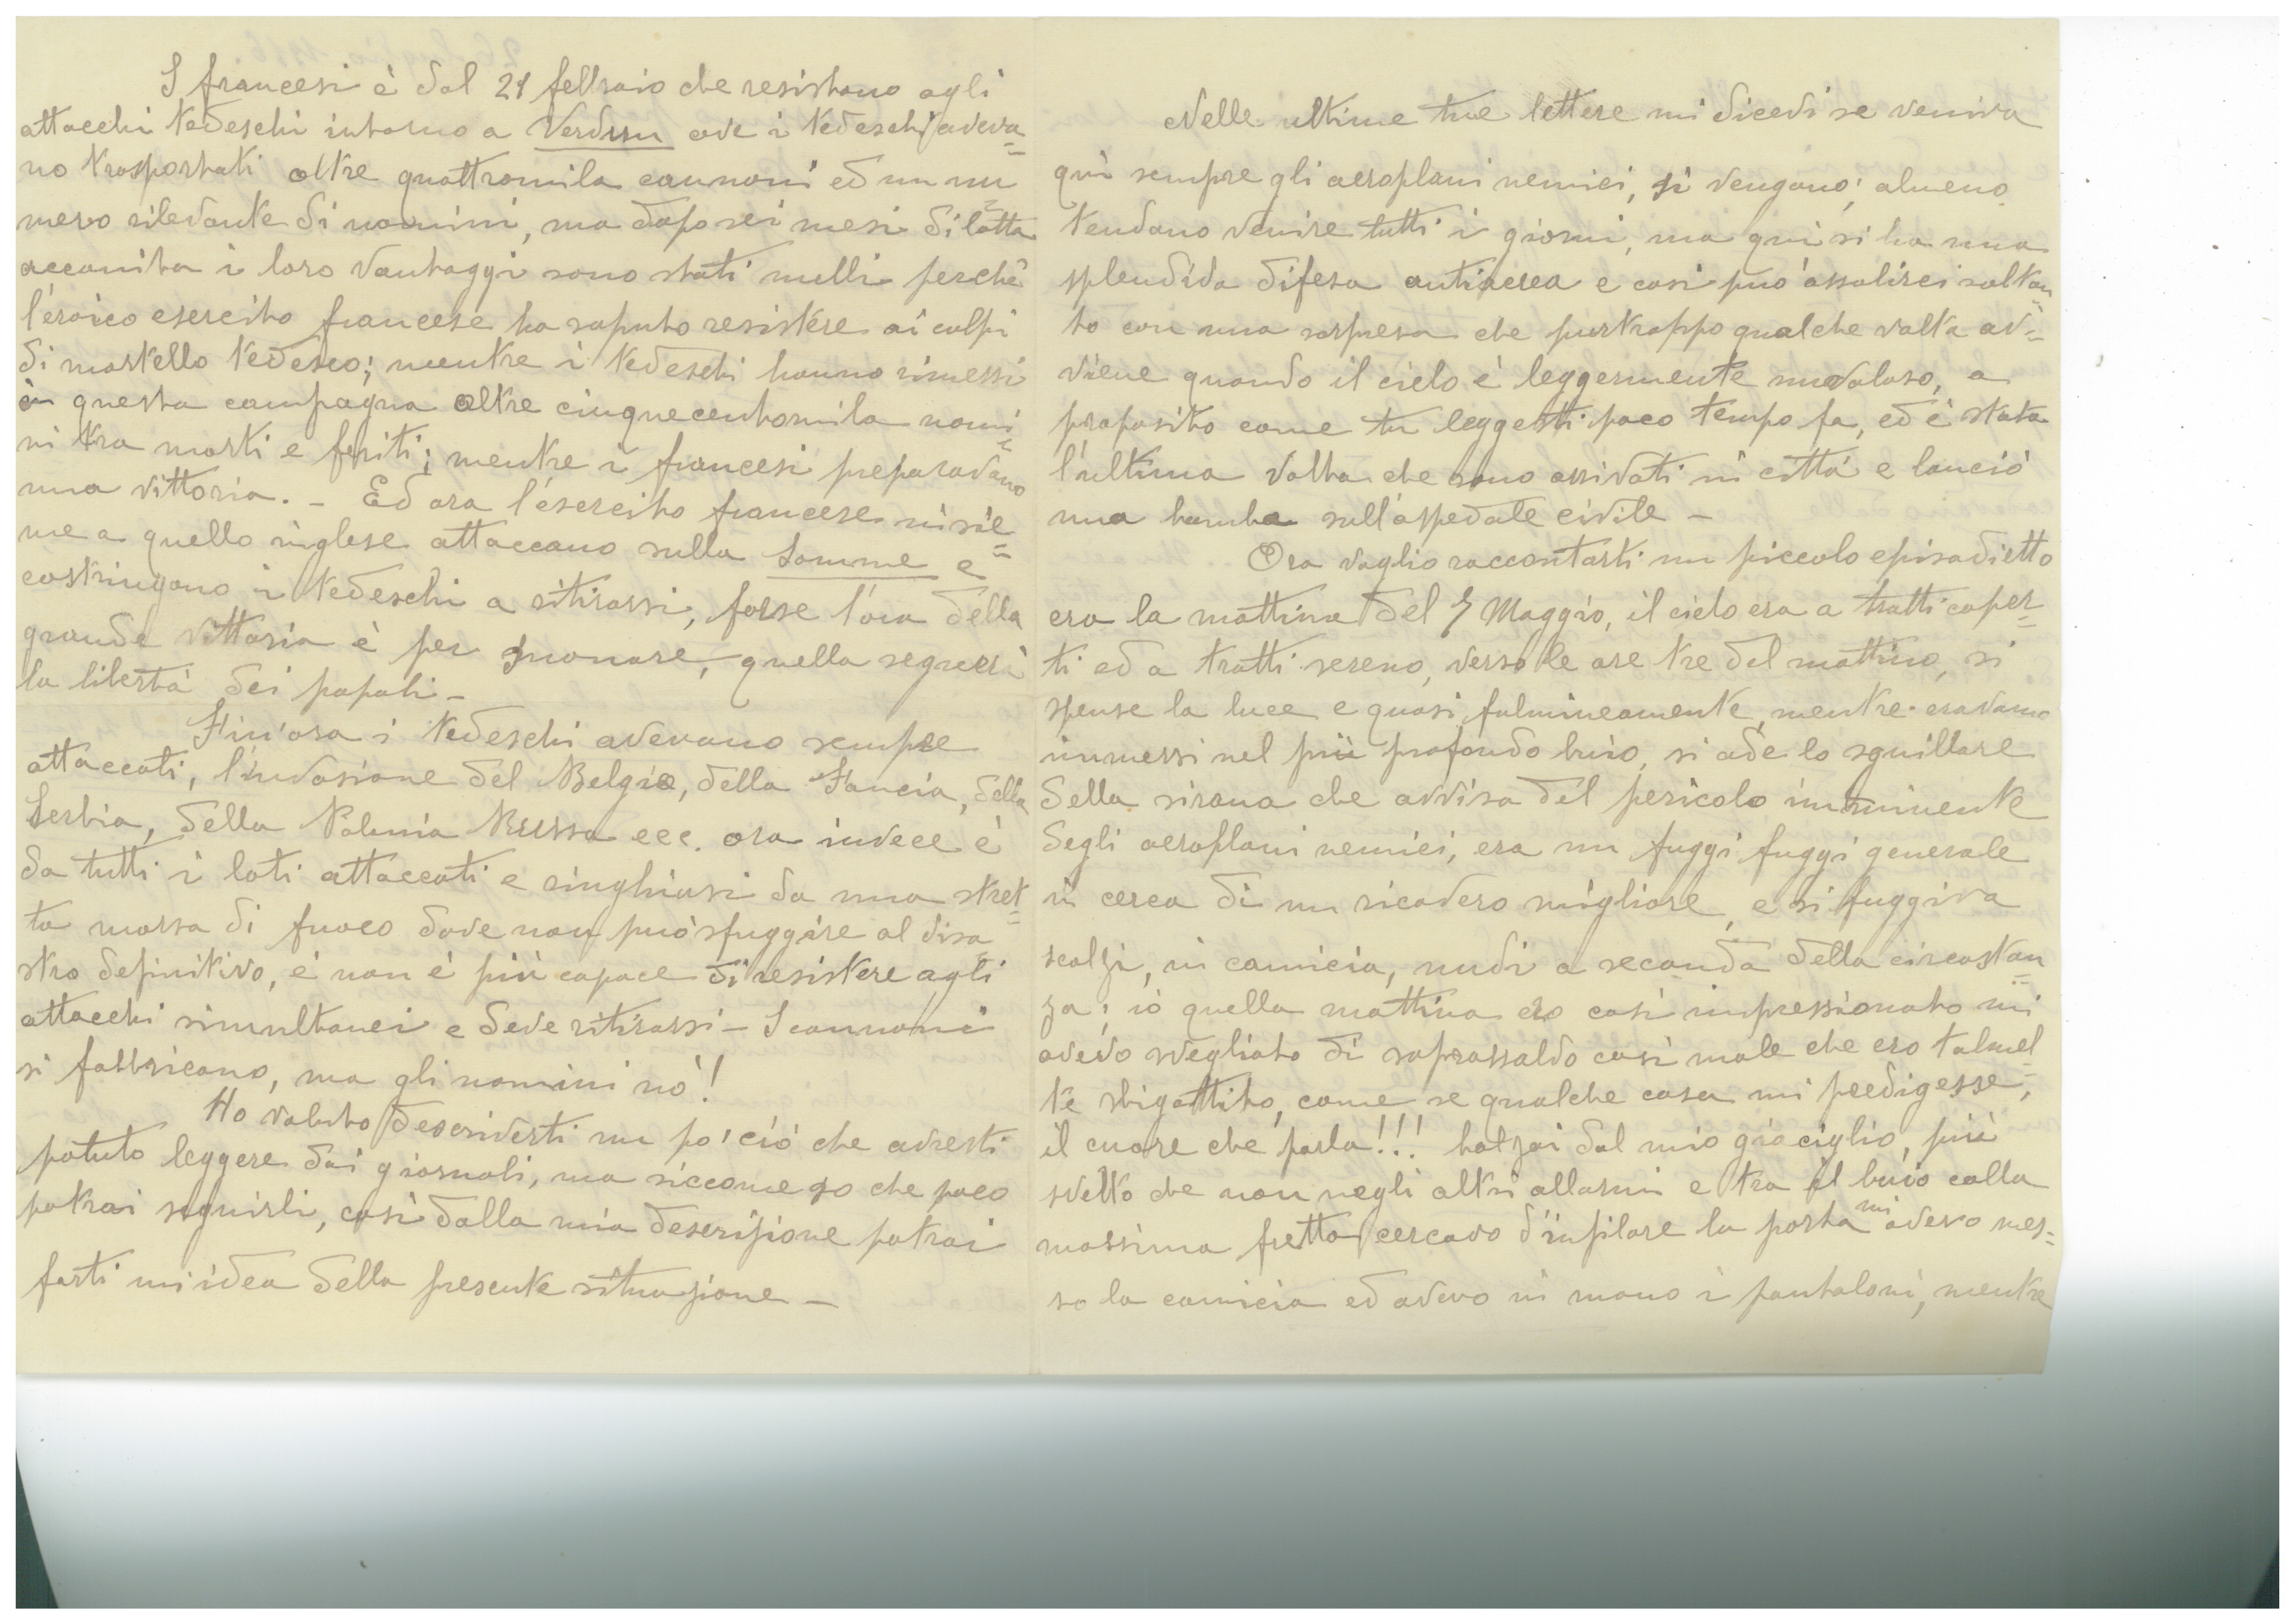 I francesi è dal 21 febbraio che resistono agli
attacchi tedeschi intorno a Verdun ove i tedeschi aveva=
no trasportati oltre quattromila cannoni ed un nu=
mero rilevante di uomini, ma dopo sei mesi di lotta
accanita i loro vantaggi sono stati nulli perchè
l'eroico esercito francese ha saputo resistere ai colpi
di martello tedesco; mentre i tedeschi hanno rimessi
in questa campagna oltre cinquecentomila uomi=
ni tra morti e feriti; mentre i francesi preparavano
una vittoria. - Ed ora l'esercito francese insie=
me a quello inglese attaccano sulla Somme e
costringono i tedeschi a ritirarsi, forse l'ora della
grande vittoria è per suonare, quella segnerà
la libertà dei popoli -
Fin'ora i tedeschi avevano sempre
attaccati, l'invasione del Belgio, della Fancia, della
Serbia, della Polonia Russa ecc. ora invece è
da tutti i lati attaccati e ringhiusi da una stret=
ta morsa di fuoco dove non può sfuggire al disa=
stro definitivo, è non è più capace di resistere agli
attacchi simultanei e deve ritirarsi - I cannoni
si fabbricano, ma gli uomini nò!
Ho voluto descriverti un pò' ciò che avresti
potuto leggere dai giornali, ma siccome so che poco
potrai seguirli, così dalla mia descrizione potrai
farti un idea della presente situazione -
Nelle ultime tue lettere mi dicevi se veniva
quì sempre gli aeroplani nemici, sì vengono; almeno
tendano venire tutti i giorni, ma quì si ha una
splendida difesa antiaerea e così può assalirci soltan=
to con una sorpresa che purtroppo qualche volta av=
viene quando il cielo è leggermente nuvoloso, a
proposito come tu leggesti poco tempo fa, ed è stata
l'ultima volta che sono arrivati in città e lanciò
una bomba sull'ospedale civile -
Ora voglio raccontarti un piccolo episodietto
era la mattina del 7 Maggio, il cielo era a tratti coper=
ti ed a tratti sereno, verso le ore tre del mattino, si
spense la luce e quasi fulmineamente, mentre eravamo
immersi nel più profondo buio, si ode lo squillare
della sirana che avvisa del pericolo imminente
degli aeroplani nemici, era un fuggi fuggi generale
in cerca di un ricovero migliore, e si fuggiva
scalzi, in camicia, nudi a seconda della circostan=
za; iò quella mattina ero così impressionato mi
avevo svegliato di soprassaldo così male che ero talmel=
te sbigottito, come se qualche cosa mi predigesse,
il cuore che parla!!! balzai dal mio giaciglio, più
svelto che non negli altri allarmi e tra il buio colla
massima fretta cercavo d'infilare la porta mi avevo mes=
so la camicia ed avevo in mano i pantaloni, mentre